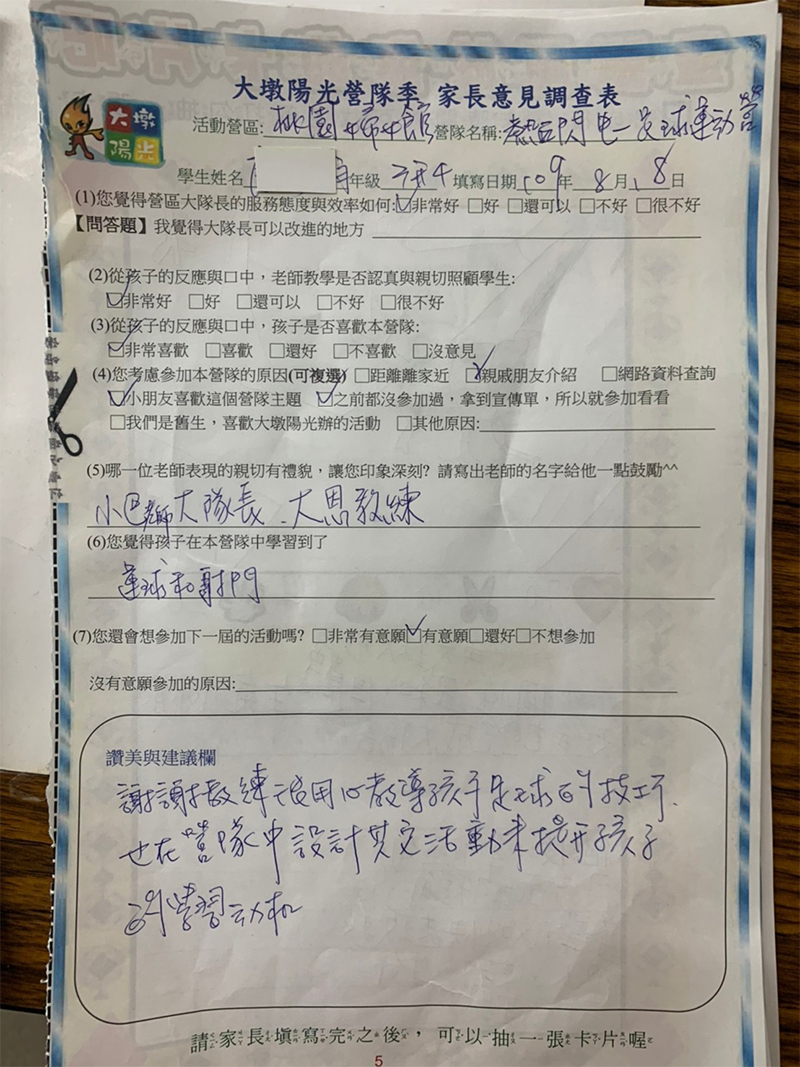 大墩陽光營隊季 家長意見調查表
大墩
陽光
活動營區: 桃園婦女館 營隊名稱: 熱血閃電-足球運動營
學生姓名 年級 升4 填寫日期 109年 8月 8日
(1)您覺得營區大隊長的服務態度與效率如何:☑非常好 □好 □還可以 □不好 □很不好
【問答題】我覺得大隊長可以改進的地方
(2)從孩子的反應與口中，老師教學是否認真與親切照顧學生:
☑非常好 □好 □還可以 □不好 □很不好
(3)從孩子的反應與口中，孩子是否喜歡本營隊:
☑非常喜歡 □喜歡 □還好 □不喜歡 □沒意見
(4)您考慮參加本營隊的原因(可複選) □距離離家近 ☑親戚朋友介紹 □網路資料查詢
☑小朋友喜歡這個營隊主題 ☑之前都沒參加過，拿到宣傳單，所以就參加看看
□我們是舊生，喜歡大墩陽光辦的活動 □其他原因:
(5)哪一位老師表現的親切有禮貌，讓您印象深刻? 請寫出老師的名字給他一點鼓勵^^
小巴老師大隊長、大恩教練
(6)您覺得孩子在本營隊中學習到了
運球和射門
(7)您還會想參加下一屆的活動嗎? □非常有意願☑有意願□還好□不想參加
沒有意願參加的原因:
讚美與建議欄
謝謝教練很用心教導孩子足球的技巧、
也在營隊中設計其它活動來提升孩子
的學習动机
請家長填寫完之後，可以抽一張卡片喔
5